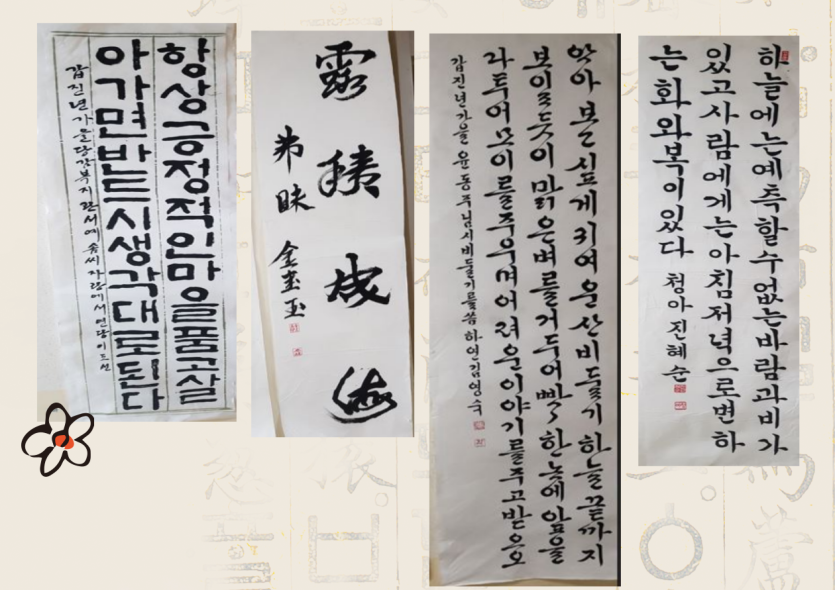 항상긍정적인마음을품고살
아가면반드시생각대로된다
갑진년가을당감복지관서예솜씨자랑에서
露積成海
金奎玉
안아본싶게귀여운산비둘기하늘끝까지
보이ㄹ듯이맑은벼를거두어빤한논에앞을
다투어모이를주우며어려운이야기를주고받으오
갑진년가을 윤동주님시비둘기를씀 하연김영숙
하늘에는예측할수없는바람과비가
있고사람에게는아침저녁으로변하
는화와복이있다 청아진혜순